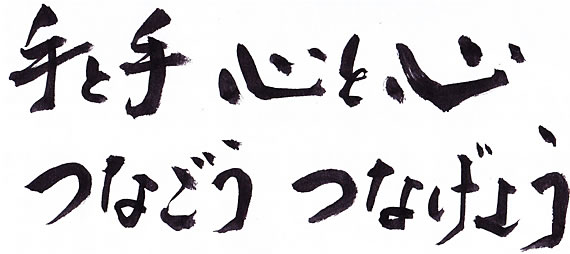 手と手 心と心
つなごう つなげよう